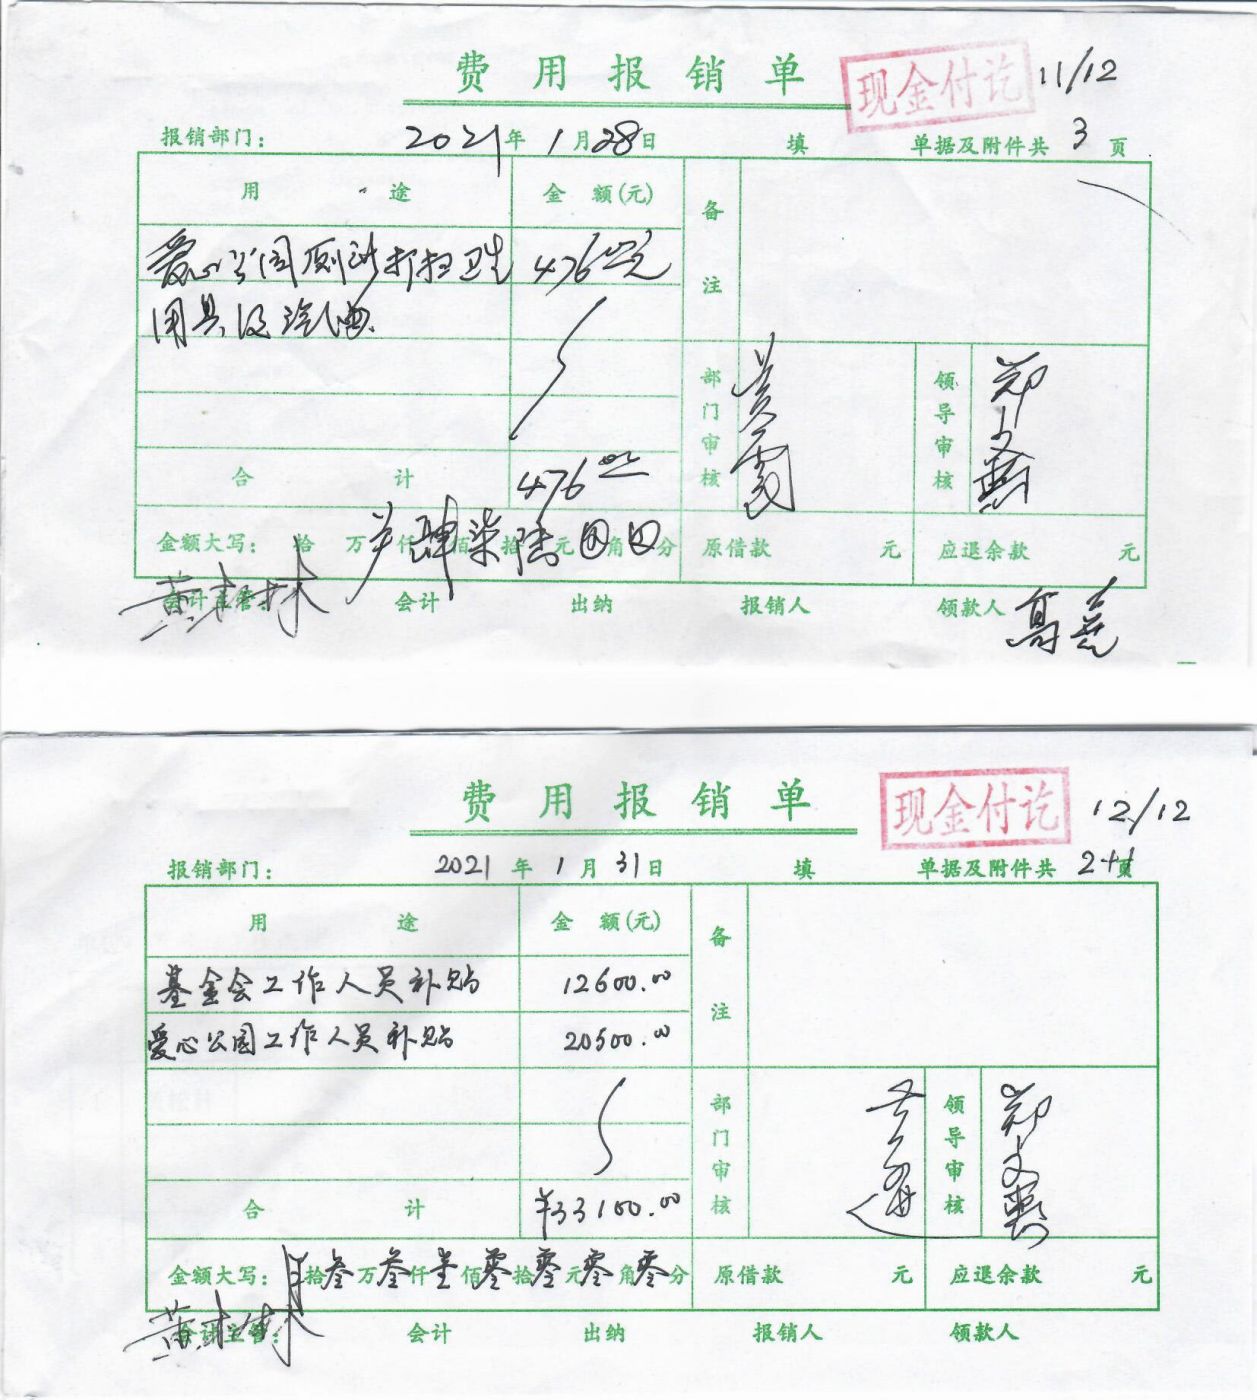 费用报销单
现金付讫
11/12
报销部门: 2021年1月28日 填 单据及附件共 3 页
用途 金额(元) 备注
爱心公园厕所打扫卫生 476.00元
用具及汽油
部门审核 领导审核 郑
合计 476.00
金额大写: 拾万仟肆佰柒拾陆元0角0分 原借款 元 应退余款 元
会计主管: 会计 出纳 报销人 领款人 高
费用报销单
现金付讫
12/12
报销部门: 2021年1月31日 填 单据及附件共 2+1页
用途 金额(元) 备注
基金会工作人员补贴 12600.00
爱心公园工作人员补贴 20500.00
部门审核 领导审核 郑文
合计 ¥33100.00
金额大写: 拾叁万叁仟壹佰零拾零元零角零分 原借款 元 应退余款 元
会计主管: 会计 出纳 报销人 领款人